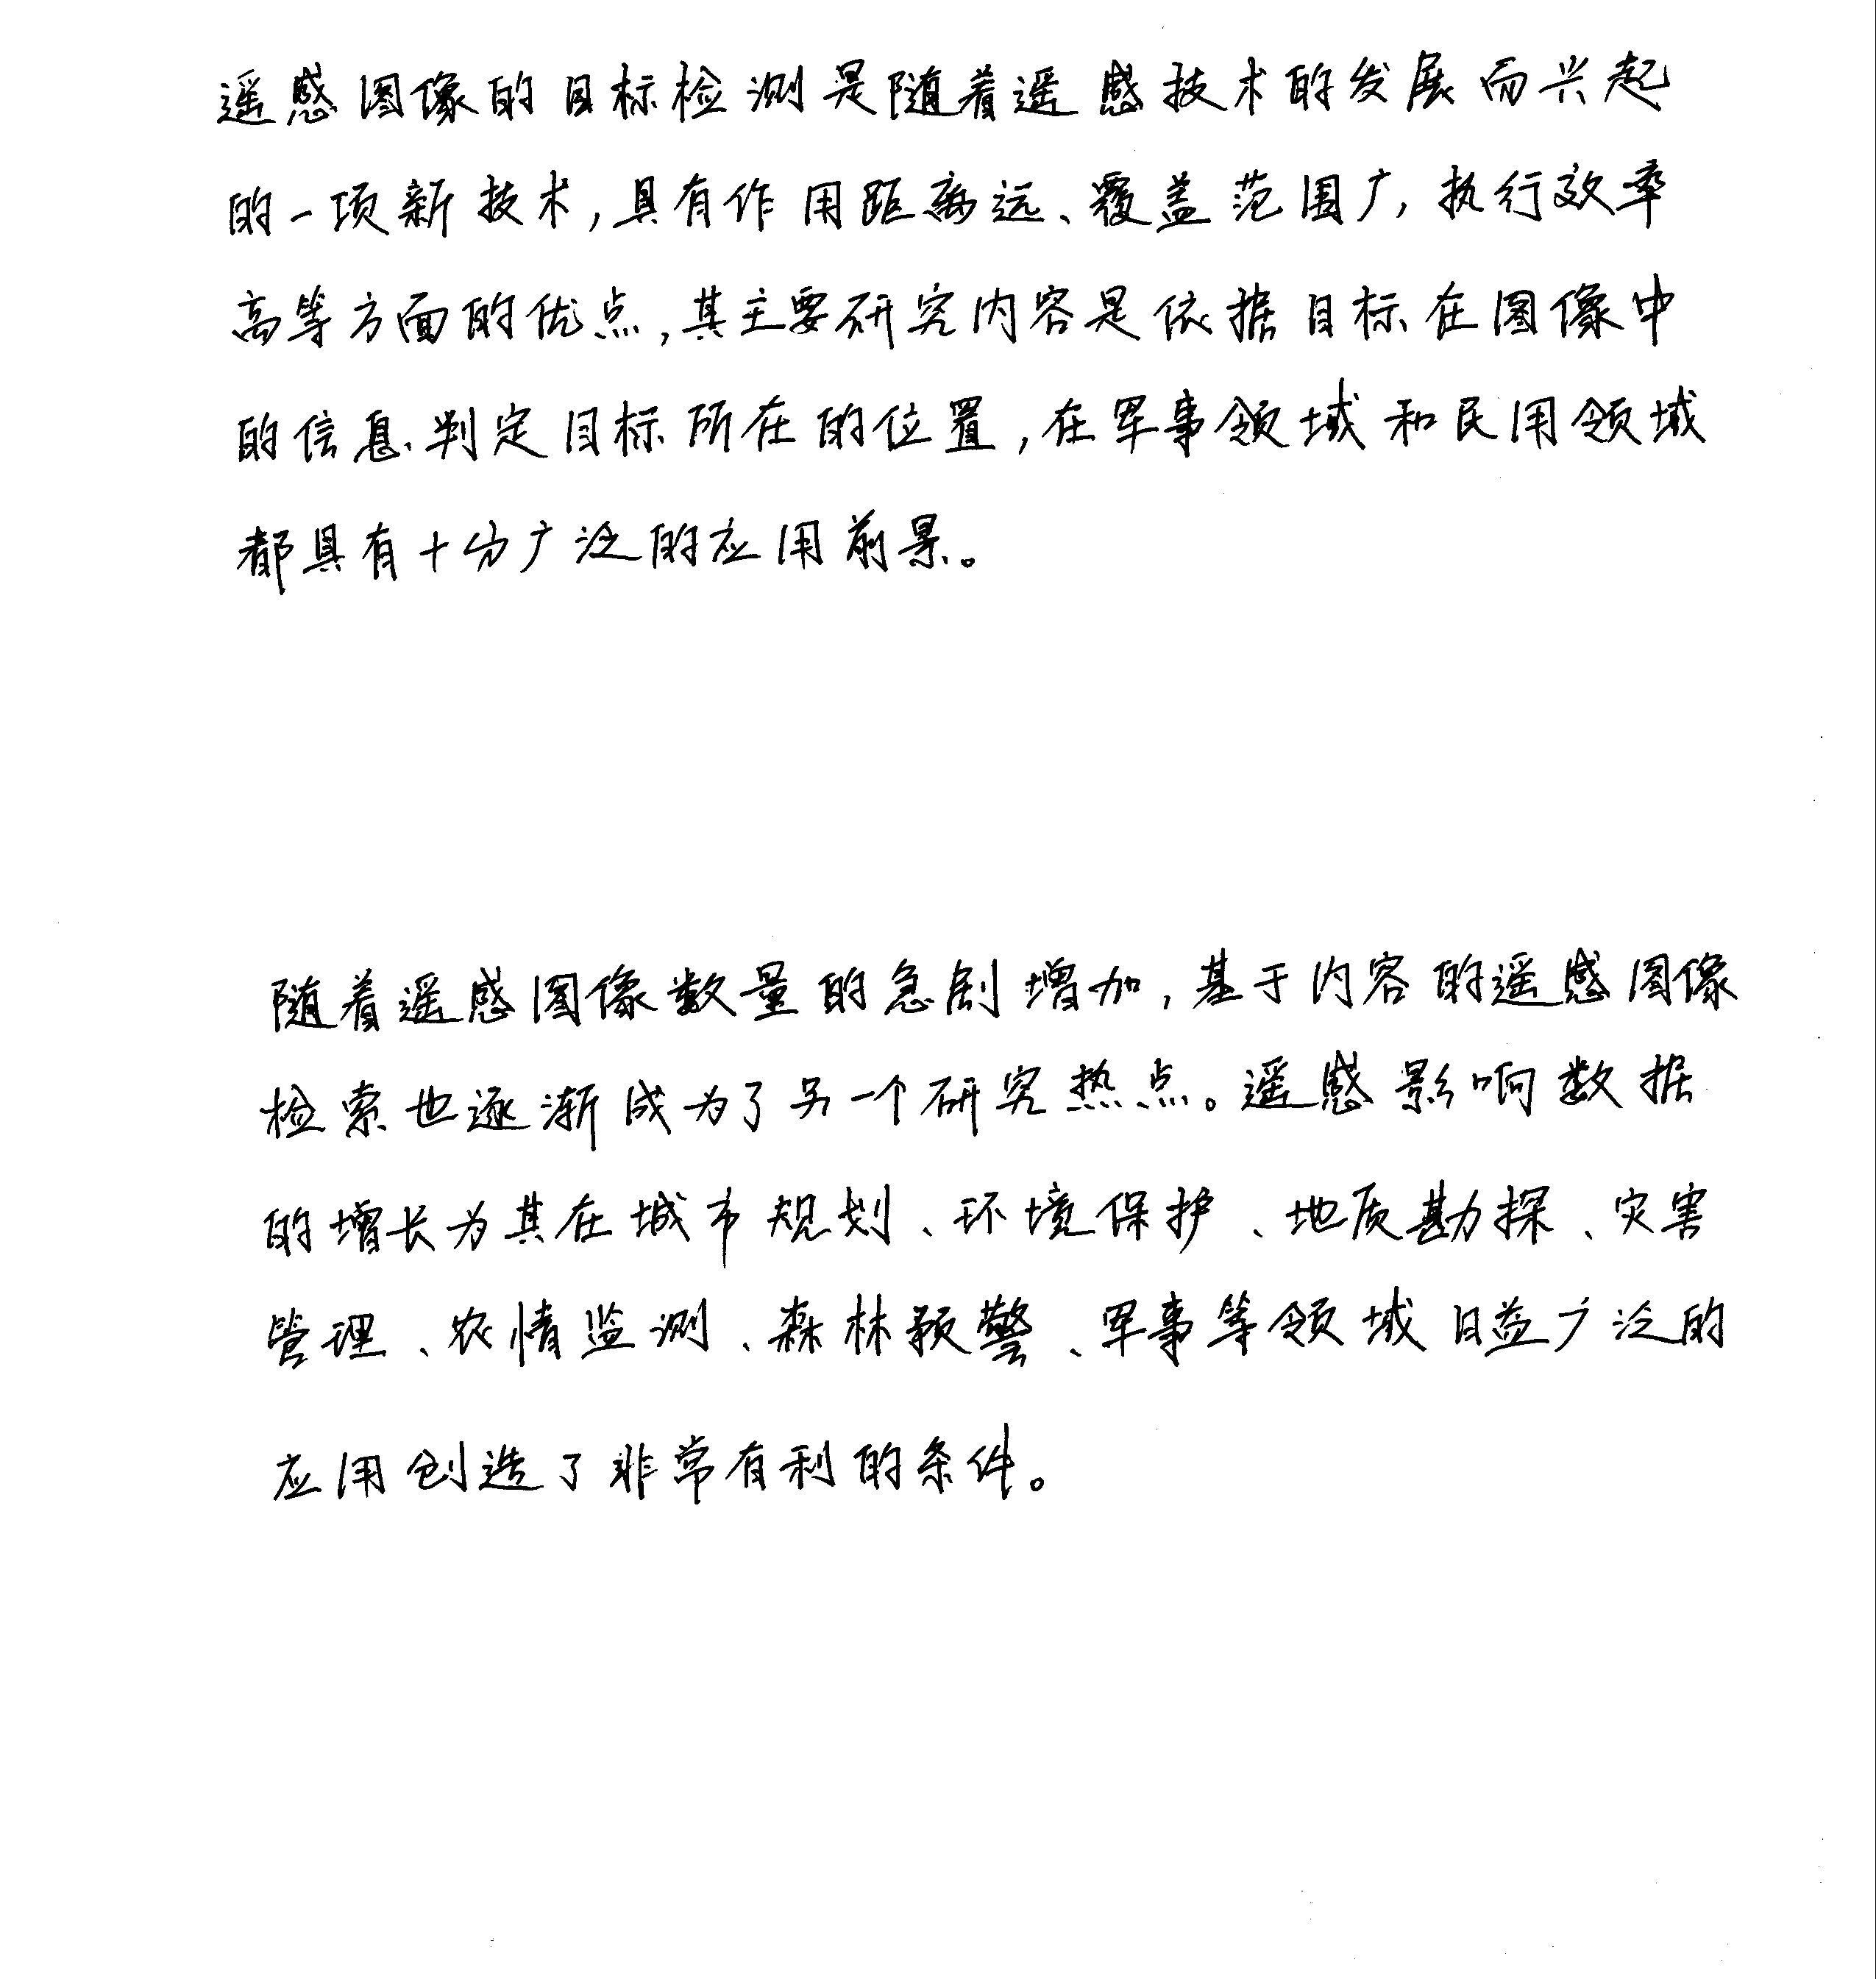 遥感图像的目标检测是随着遥感技术的发展而兴起
的一项新技术,具有作用距离远、覆盖范围广,执行效率
高等方面的优点,其主要研究内容是依据目标在图像中
的信息、判定目标所在的位置,在军事领域和民用领域
都具有十分广泛的应用前景。
随着遥感图像数量的急剧增加,基于内容的遥感图像
检索也逐渐成为了另一个研究热点。遥感影响数据
的增长为其在城市规划、环境保护、地质勘探、灾害
管理、农情监测、森林预警、军事等领域日益广泛的
应用创造了非常有利的条件。